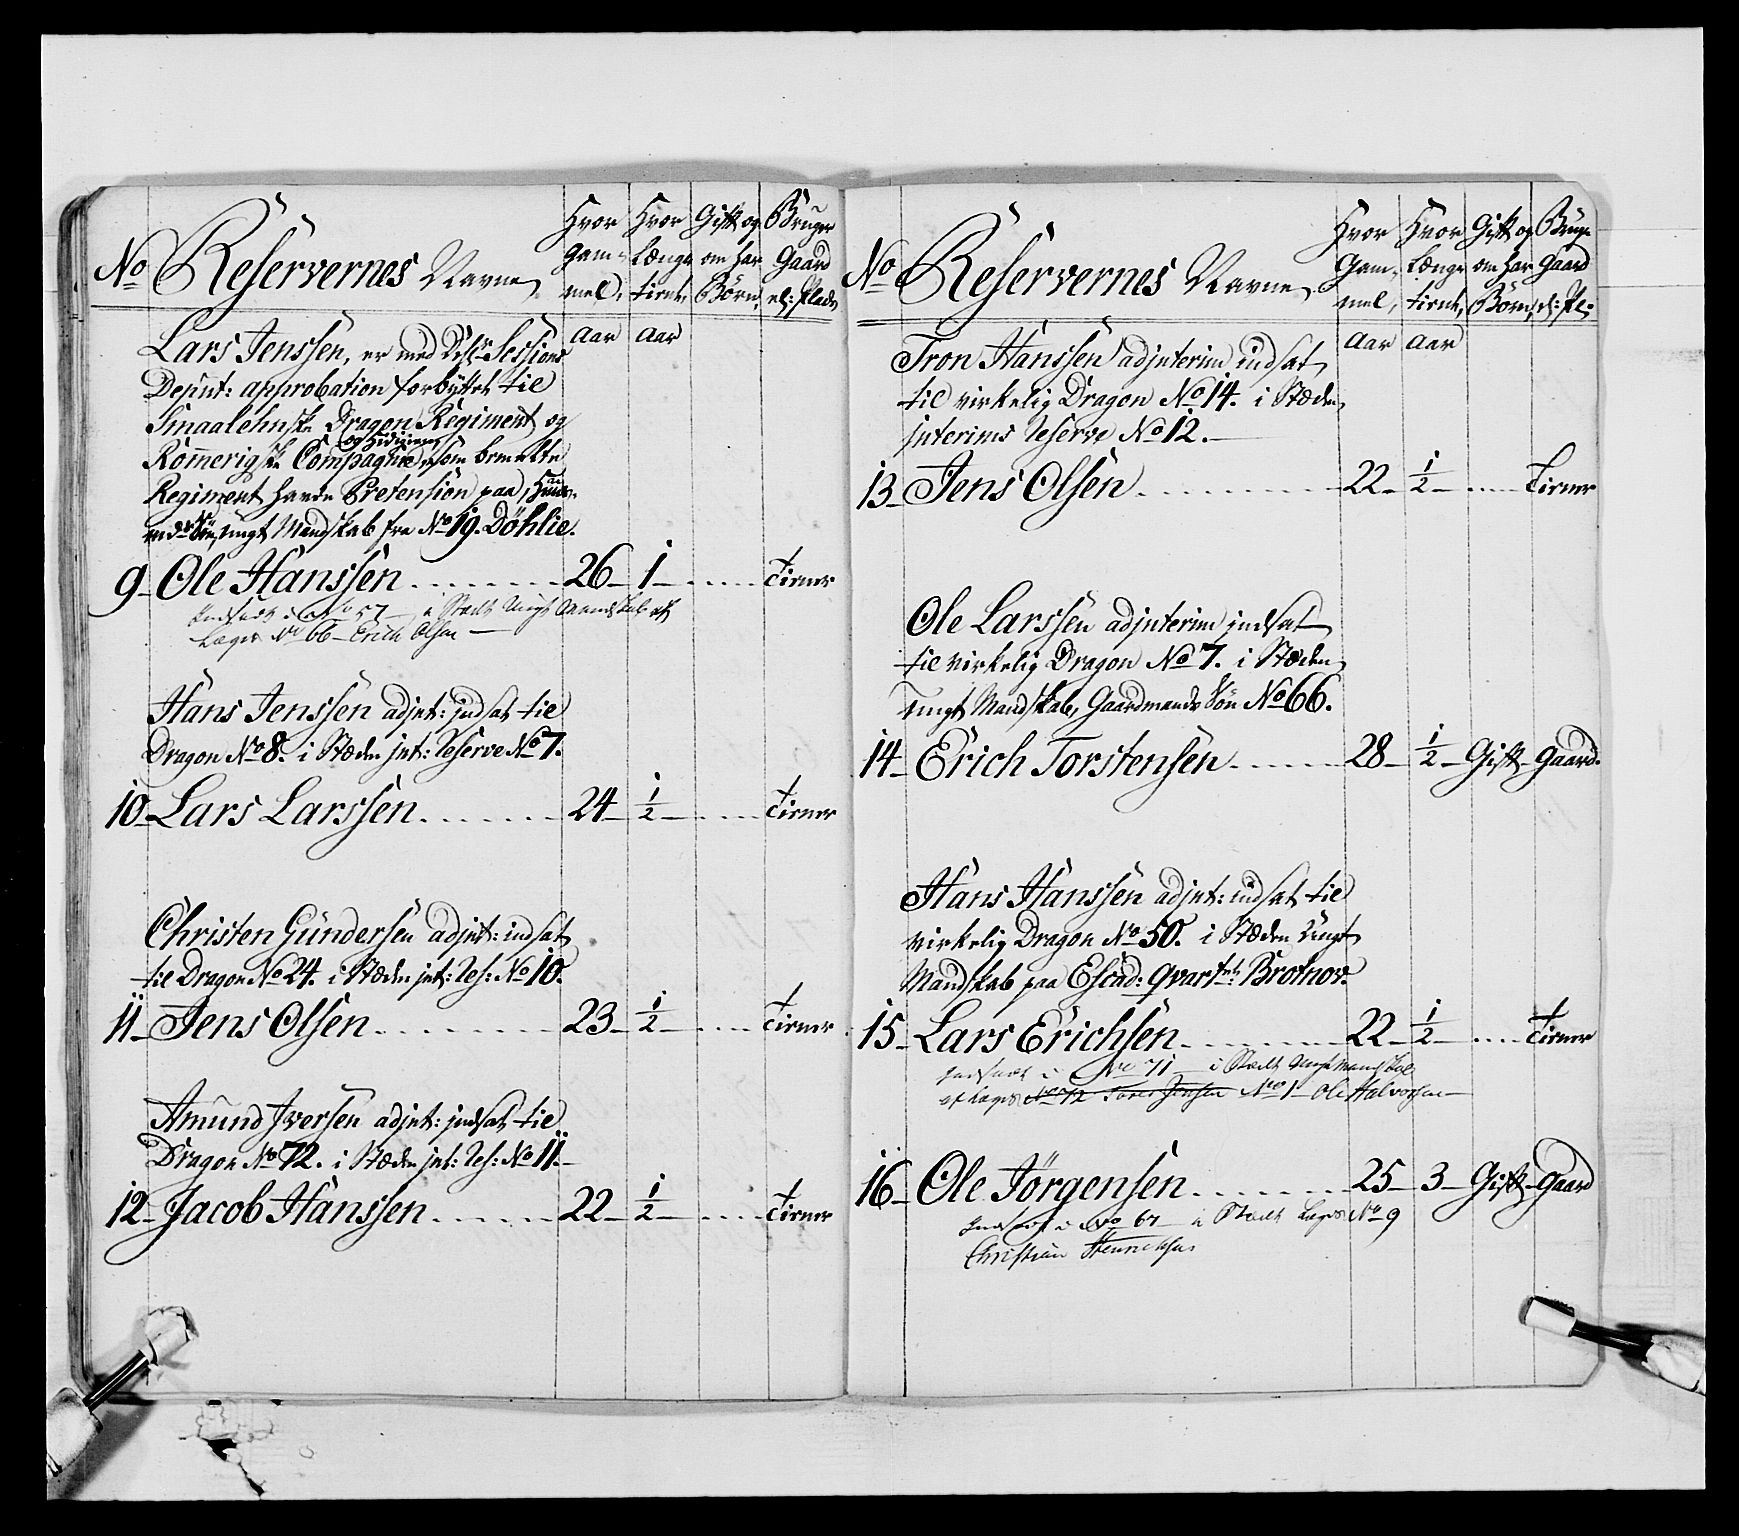 No Reservernes Navne
Hvor gam- mel,
Hvor længe tient,
Gift og om har Børn,
Bruger Gaard el: Plads
Aar Aar
Lars Jenssen, er med Sessions
Deput: approbation forbyttet til
Smaalehnske Dragon Regiment og
og
Rommerigske Compagnie som bemelte
Regiment havde Prætension paa,
ungt Mandskab fra No 19. Döhlie.
9 Ole Hanssen 26 1 tiener
Indsadt i No 57 i Stædt Ungt Mandskab af
Lægd No 66 Erich Olsen
Hans Jenssen adjnt: indsat til
Dragon No 8. i Stæden int: Reserve No 7.
10 Lars Larssen 24 1/2 tiener
Christen Gundersen adjnt: indsat
til Dragon No 24. i Stæden int: Res: No 10.
11 Jens Olsen 23 1/2 tiener
Amund Iversen adjnt: indsat til
Dragon No 72. i Stæden int: Res: No 11.
12 Jacob Hanssen 22 1/2 tiener
No Reservernes Navne
Hvor Gam- mel,
Hvor længe tient,
Gift og om har Börn,
Bruger Gaard el: Pl:
Aar Aar
Tron Hanssen adjnterim indsat
til virkelig Dragon No 14. i Stæden
interims Reserve No 12.
13 Jens Olsen 22 1/2 tiener
Ole Larssen adjnterim indsat
til virkelig Dragon No 7. i Stæden
ungt Mandskab, Gaardmands Sön No 66.
14 Erich Torstensen 28 1/2 Gift gaard.
Hans Hanssen adjnt: indsat til
virkelig Dragon No 50. i Stæden ungt
Mandskab paa Escad: qvartrt: Brotnov.
15 Lars Erichsen 22 1/2 tiener
Indsadt i No 71 i Stædt Ungt Mandskab
af Lægd No 72 Tores Jensen No 1 Ole Halvorsen
16 Ole Jörgensen 25 3 Gift gaard
Indsadt i No 67 i Stædt Lægd No 9
Christian Henrichsen